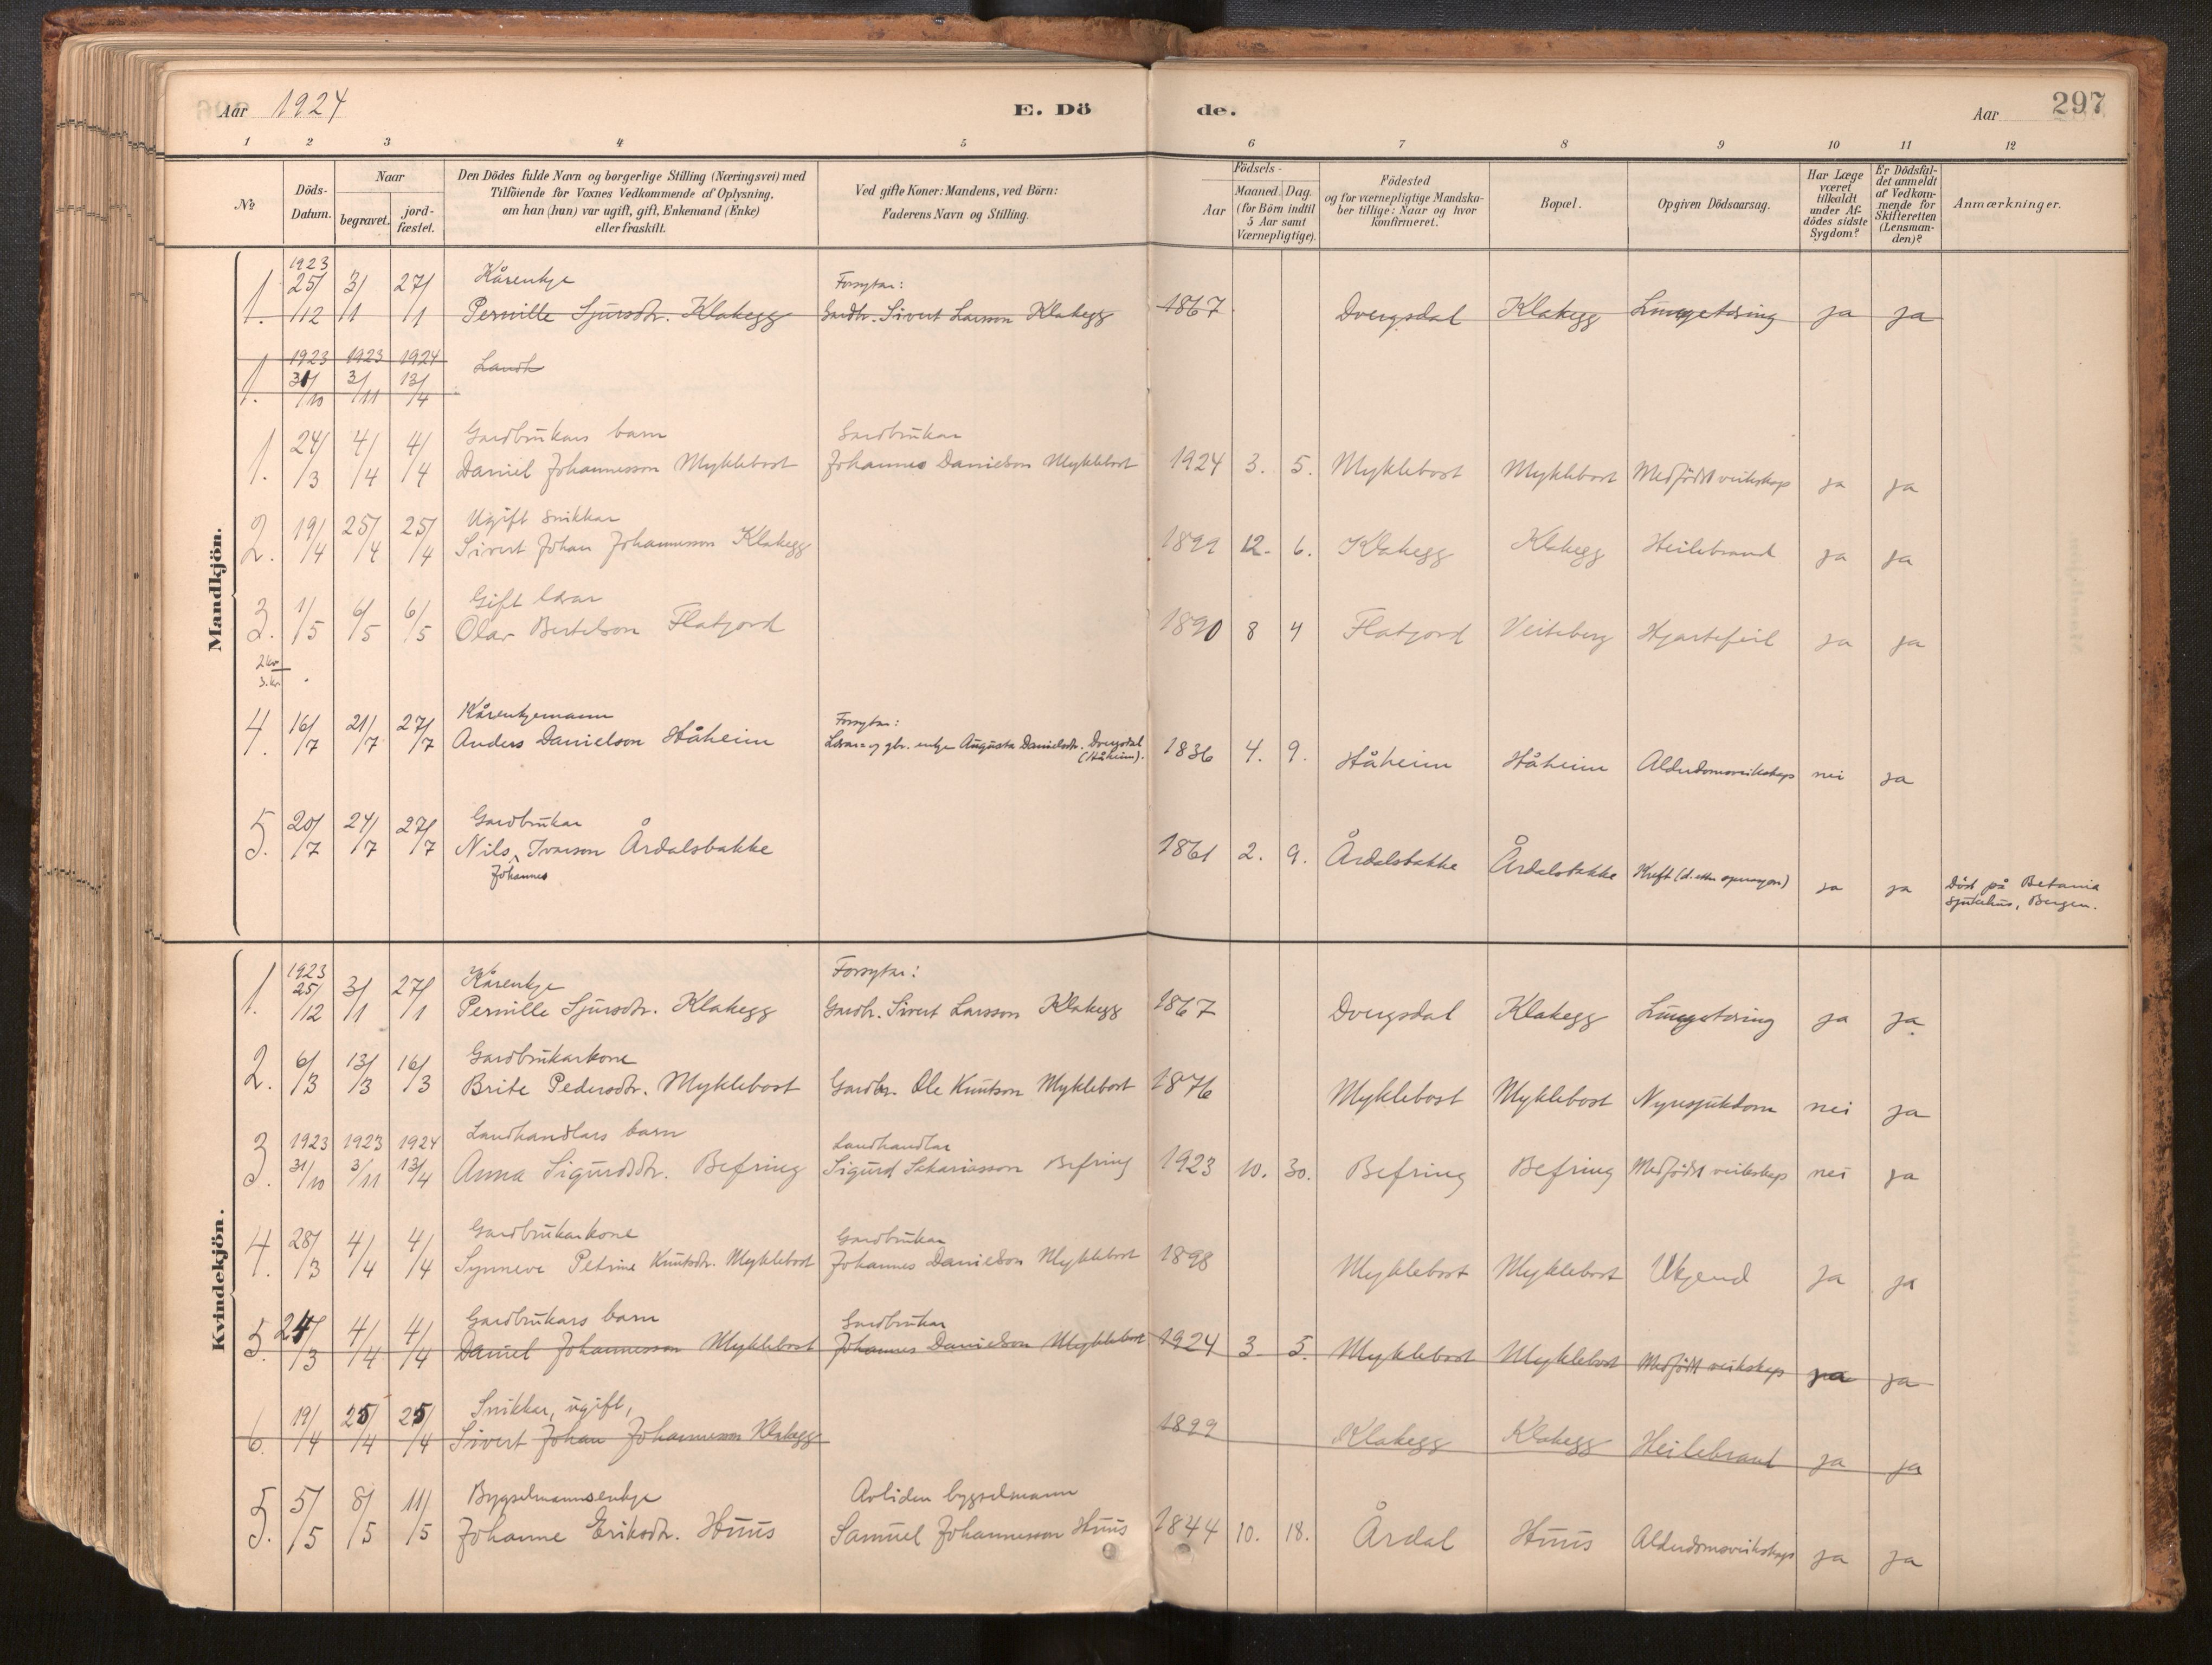 Aar 1924 E. Dö de. Aar 297
1 2 3 4 5 6 7 8 9 10 11 12
No
Döds-
Datum.
Naar
begravet.
jord-
fæstet.
Den Dödes fulde Navn og borgerlige Stilling (Næringsvei) med
Tilföiende for Voxnes Vedkommende af Oplysning,
om han (hun) var ugift, gift, Enkemand (Enke)
eller fraskilt.
Ved gifte Koner: Mandens, ved Börn:
Faderens Navn og Stilling.
Födsels-
Aar
Maaned. Dag.
(for Börn indtil
5 Aar samt
Værnepligtige).
Födested
og for værnepligtige Mandska-
ber tillige: Naar og hvor
konfirmeret.
Bopæl.
Opgiven Dödsaarsag.
Har Læge
været
tilkaldt
under Af-
dödes sidste
Sygdom?
Er Dödsfal-
det anmeldt
af Vedkom-
mende for
Skifteretten
(Lensman-
den)?
Anmærkninger.
Mandkjön.
1923
Kårenkje Forsytar:
1. 25/12 3/1 27/1 Pernille Sjursdtr. Klakegg Gardbr. Sivert Larsson Klakegg 1867 Dvergsdal Klakegg Lungetæring ja ja
1923 1923 1924
1. 31/10 3/11 13/4 Landh
Gardbrukars barn Gardbrukar
1. 24/3 4/4 4/4 Daniel Johannesson Myklebost Johannes Danielson Myklebost 1924 3. 5. Myklebost Myklebost Medfödt veikskap ja ja
Ugift snikkar
2. 19/4 25/4 25/4 Sivert Johan Johannesson Klakegg 1899 12. 6. Klakegg Klakegg Heilebrand ja ja
Gift lærar
3. 1/5 6/5 6/5 Olav Bertelson Flatjord 1890 8 4 Flatjord Veiteberg Hjartefeil ja ja
2 kv.
3. kv.
Kårenkjemann Forsytar:
4. 16/7 21/7 27/7 Anders Danielson Håheim Lærar- og gbr. enkje Augusta Danielsdtr. Dvergsdal 1836 4. 9. Håheim Håheim Alderdomsveikskap nei ja
(Håheim).
Gardbrukar
5. 20/7 24/7 27/7 Nils Ivarson Årdalsbakke 1861 2. 9. Årdalsbakke Årdalsbakke Kreft (d. etter operasjon) ja ja Död på Betania
Johannes sjukehus, Bergen.
Kvindekjön.
1923
Kårenkje Forsytar:
1. 25/12 3/1 27/1 Pernille Sjursdtr. Klakegg Gardbr. Sivert Larsson Klakegg 1867 Dvergsdal Klakegg Lungetæring ja ja
Gardbrukarkone
2. 6/3 13/3 16/3 Brite Pedersdtr. Myklebost Gardbr. Ole Knutson Myklebost 1876 Myklebost Myklebost Nyresjukdom nei ja
1923 1923 1924 Landhandlars barn Landhandlar
3. 31/10 3/11 13/4 Anna Sigurdsdtr. Befring Sigurd Sakariasson Befring 1923 10. 30. Befring Befring Medfödt veikskap nei ja
Gardbrukarkone Gardbrukar
4. 28/3 4/4 4/4 Synneve Petrine Knutsdtr. Myklebost Johannes Danielson Myklebost 1898 Myklebost Myklebost Ukjend ja ja
Gardbrukars barn Gardbrukar
5. 24/3 4/4 4/4 Daniel Johannesson Myklebost Johannes Danielson Myklebost 1924 3. 5. Myklebost Myklebost Medfödt veikskap ja ja
Snikkar, ugift,
6. 19/4 25/4 25/4 Sivert Johan Johannesson Klakegg 1899 Klakegg Klakegg Heilebrand ja ja
Bygselmannsenkje Avliden bygselmann
5. 5/5 8/5 11/5 Johanne Eriksdtr. Huus Samuel Johannesson Huus 1844 10. 18. Årdal Huus Alderdomsveikskap ja ja